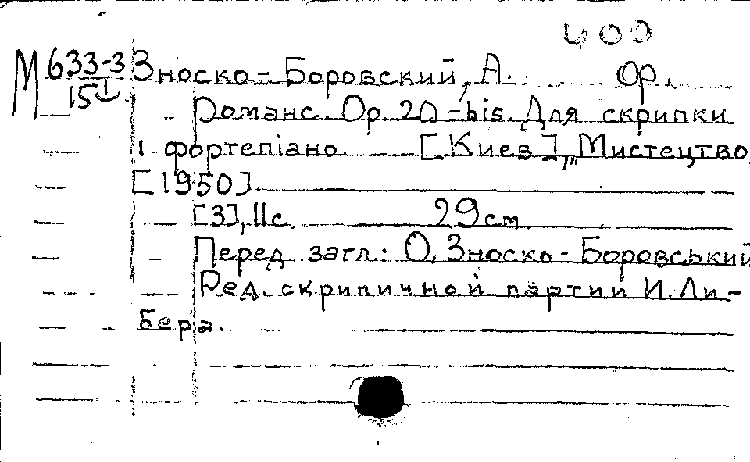 400
М 633-3 Зноско-Боровский, А. Ор.
151
Романс. Op. 20-bis. Для скрипки
і фортепіано. [Киев], „Мистецтво,
[1950]
[3], 11с. 29см
Перед загл.: О. Зноско-Боровський
Ред. скрипичной партии И. Ли-
бера.